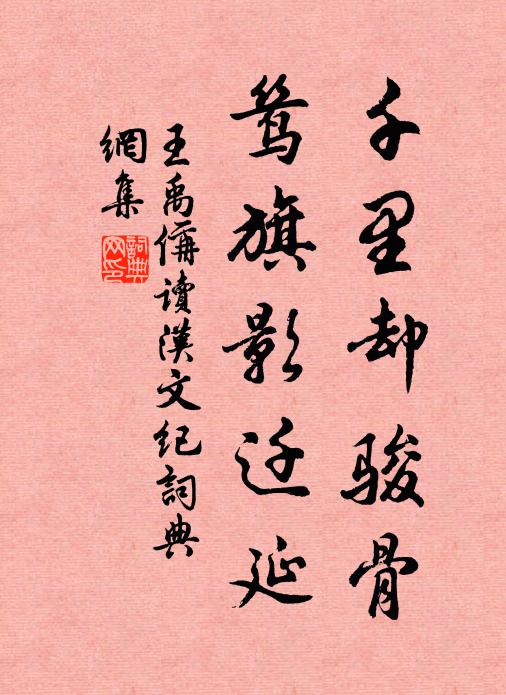 千里却骏骨
鸾旗影迁延
王禹偁讀漢文紀詞典
網集
詞典网印